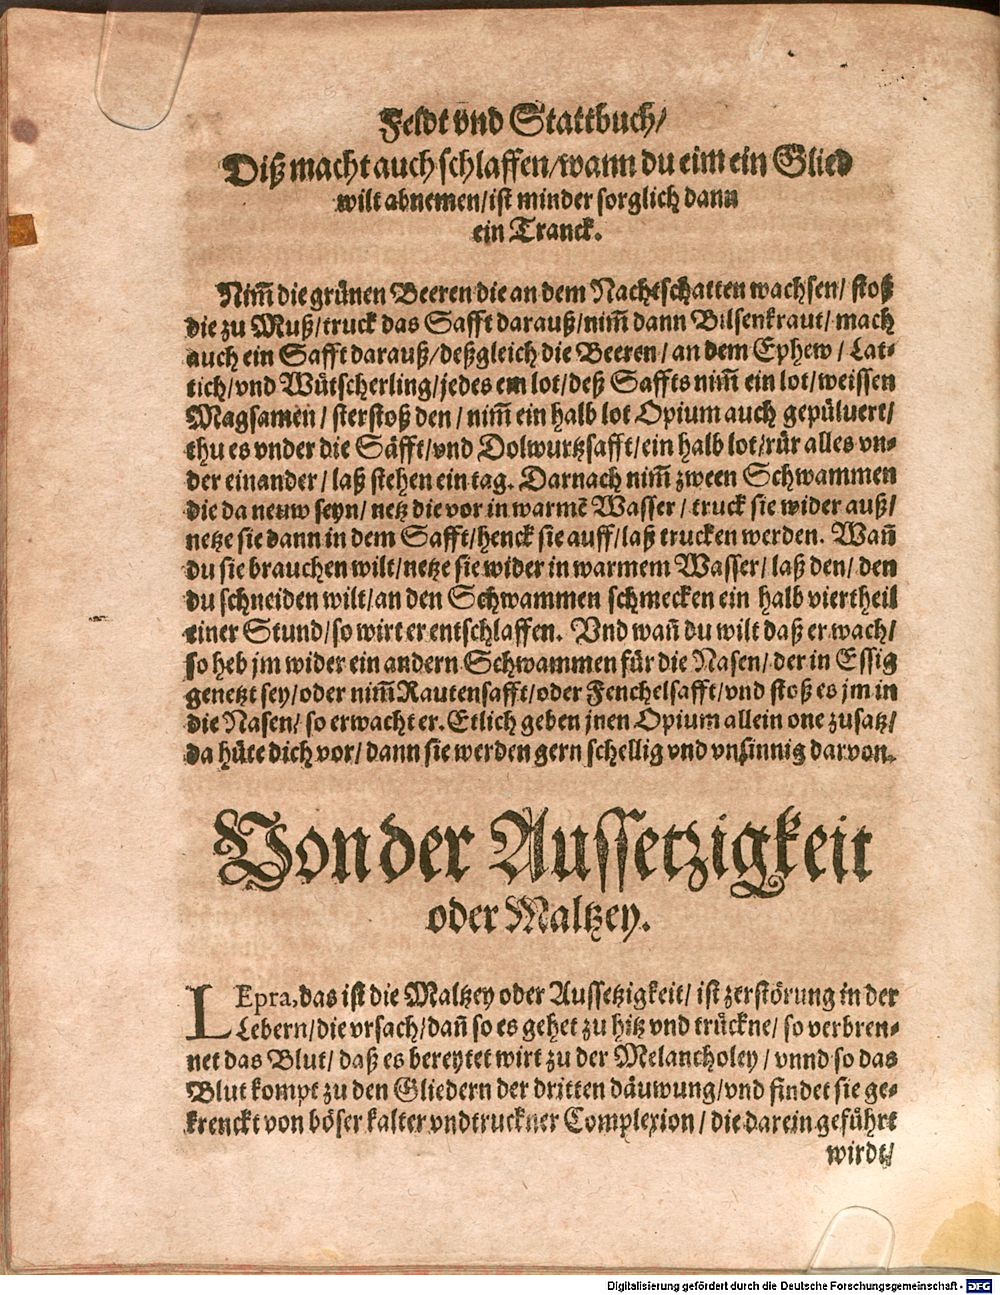 Feldt vnd Stattbuch/
Diß macht auch schlaffen/wann du eim ein Glied
wilt abnemen/ist minder sorglich dann
ein Tranck.
Nim̃ die grünen Beeren die an dem Nachtschatten wachsen/ stoß
die zu Muß/truck das Safft darauß/nim̃ dann Bilsenkraut/mach
auch ein Safft darauß/deßgleich die Beeren/an dem Ephew/Lat⸗
tich/vnd Wütscherling/jedes ein lot/deß Saffts nim̃ ein lot/weissen
Magsamen/sterstoß den/nim̃ ein halb lot Opium auch gepüluert/
thu es vnder die Säfft/vnd Dolwurtzsafft/ein halb lot/rür alles vn⸗
der einander/laß stehen ein tag. Darnach nim̃ zween Schwammen
die da neuw seyn/netz die vor in warmẽ Wasser/truck sie wider auß/
netze sie dann in dem Safft/henck sie auff/laß trucken werden. Wañ
du sie brauchen wilt/netze sie wider in warmem Wasser/laß den/den
du schneiden wilt/an den Schwammen schmecken ein halb viertheil
einer Stund/so wirt er entschlaffen. Vnd wañ du wilt daß er wach/
so heb jm wider ein andern Schwammen für die Nasen/der in Essig
genetzt sey/oder nim̃ Rautensafft/oder Fenchelsafft/vnd stoß es jm in
die Nasen/so erwacht er. Etlich geben jnen Opium allein one zusatz/
da hüte dich vor/dann sie werden gern schellig vnd vnsinnig darvon.
Von der Aussetzigkeit
oder Maltzey.
LEpra, das ist die Maltzey oder Aussetzigkeit/ist zerstörung in der
Lebern/die vrsach/dañ so es gehet zu hitz vnd trückne/so verbren⸗
net das Blut/daß es bereytet wirt zu der Melancholey/vnnd so das
Blut kompt zu den Gliedern der dritten däuwung/vnd findet sie ge⸗
krenckt von böser kalter vnd truckner Complexion/die darein geführt
wirdt/
Digitalisierung gefördert durch die Deutsche Forschungsgemeinschaft - DFG